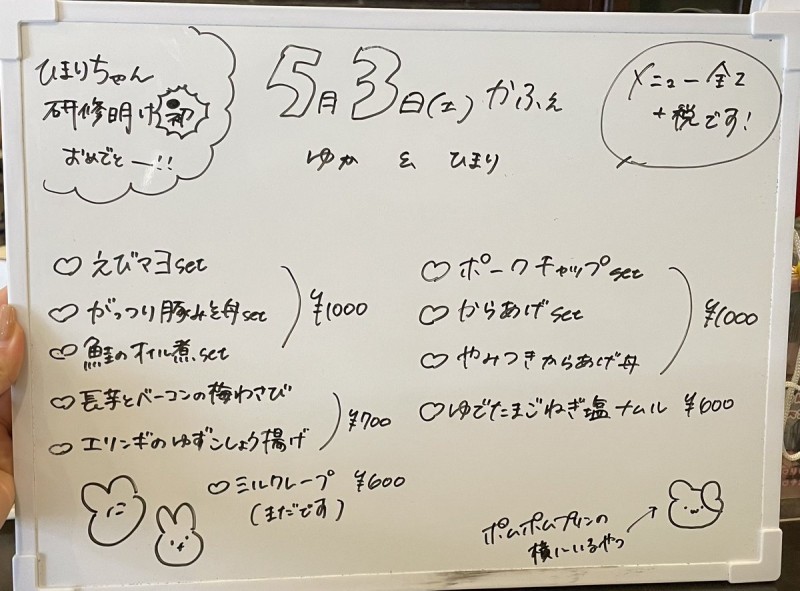 ひまりちゃん
研修明け初
おめでとー!!
5月3日(土)かふぇ
ゆか & ひまり
メニュー全て
+税です!
♡えびマヨset
♡がっつり豚みそ丼set
♡鮭のオイル煮set
¥1000
♡長芋とベーコンの梅わさび
♡エリンギのゆずこしょう揚げ
¥700
♡ミルクレープ ¥600
(まだです)
♡ポークチャップset
♡からあげset
♡やみつきからあげ丼
¥1000
♡ゆでたまごねぎ塩ナムル ¥600
ポムポムプリンの
横にいるやつ